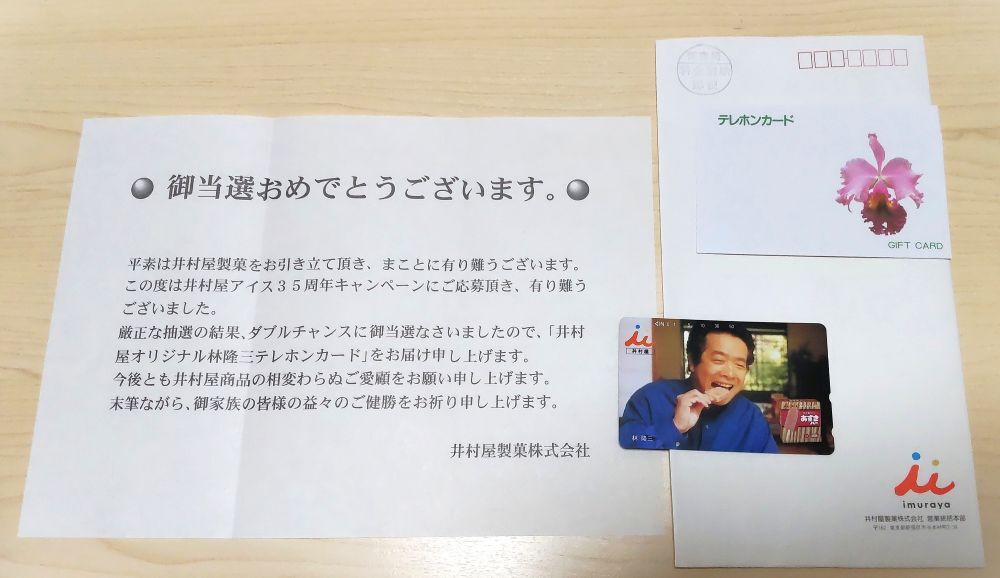 御当選おめでとうございます。
平素は井村屋製菓をお引き立て頂き、まことに有り難うございます。
この度は井村屋アイス35周年キャンペーンにご応募頂き、有り難う
ございました。
厳正な抽選の結果、ダブルチャンスに御当選なさいましたので、「井村
屋オリジナル林隆三テレホンカード」をお届け申し上げます。
今後とも井村屋商品の相変わらぬご愛顧をお願い申し上げます。
末筆ながら、御家族の皆様の益々のご健勝をお祈り申し上げます。
井村屋製菓株式会社
テレホンカード
GIFT CARD
井村屋
林 隆三
あずき
imuraya
井村屋製菓株式会社 営業統括本部